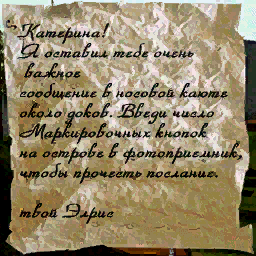 Катерина!
Я оставил тебе очень
важное
сообщение в носовой каюте
около доков. Введи число
Маркировочных кнопок
на острове в фотоприемник,
чтобы прочесть послание.
твой Элрис